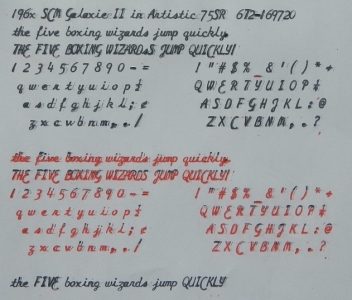 196x SCM Galaxie II in Artistic 75SR 6T2-169720
the five boxing wizards jump quickly.
THE FIVE BOXING WIZARDS JUMP QUICKLY!
1 2 3 4 5 6 7 8 9 0 - = ! " # $ % _ & ' ( ) * +
q w e r t y u i o p ½ Q W E R T Y U I O P ¼
a s d f g h j k l ; ¢ A S D F G H J K L : @
z x c v b n m , . / Z X C V B N M , . ?
the five boxing wizards jump quickly.
THE FIVE BOXING WIZARDS JUMP QUICKLY!
1 2 3 4 5 6 7 8 9 0 - = ! " # $ % _ & ' ( ) * +
q w e r t y u i o p ½ Q W E R T Y U I O P ¼
a s d f g h j k l ; ¢ A S D F G H J K L : @
z x c v b n m , . / Z X C V B N M , . ?
the FIVE boxing wizards jump QUICKLY!